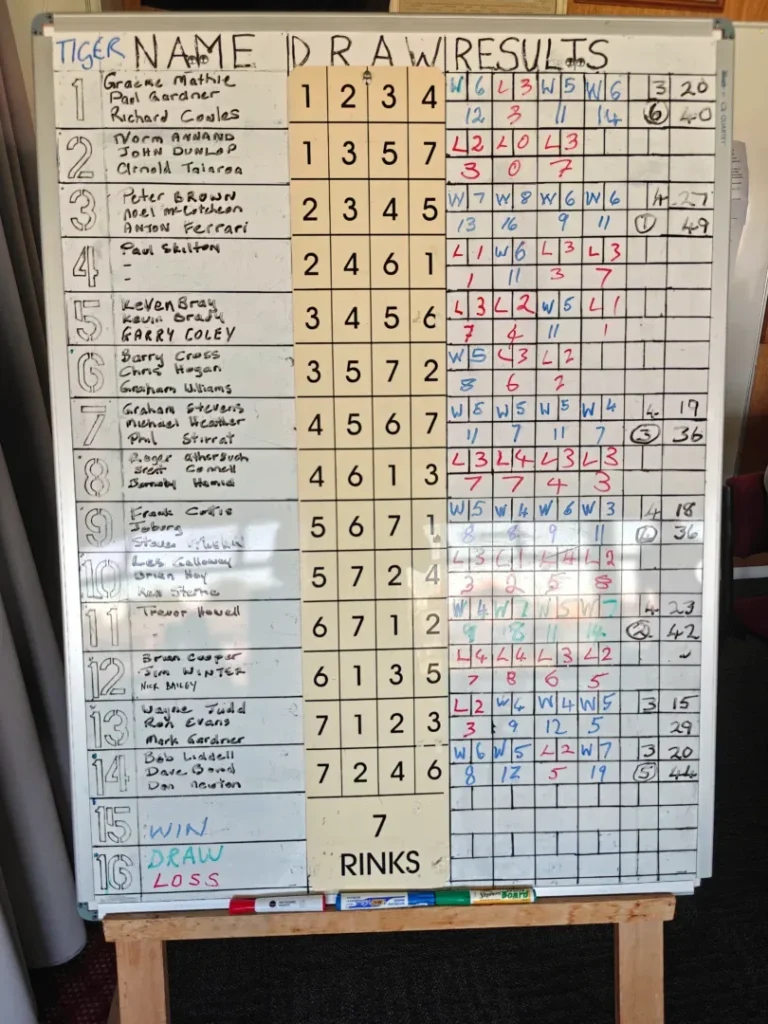 TIGER NAME DRAW RESULTS
1 Graeme Mathie 1 2 3 4 W 6 L 3 W 5 W 6 3 20
Paul Gardner
Richard Cowles 12 3 11 14 6 40
2 Norm ANNAND 1 3 5 7 L 2 L 0 L 3
JOHN DUNLOP
Arnold Tairoa 3 0 7
3 Peter BROWN 2 3 4 5 W 7 W 8 W 6 W 6 4 27
Noel McCutcheon
ANTON Ferrari 13 16 9 11 1 49
4 Paul Skilton 2 4 6 1 L 1 W 6 L 3 L 3
-
- 1 11 3 7
5 Keven Bray 3 4 5 6 L 3 L 2 W 5 L 1
Kevin Brady
GARRY COLEY 7 4 11 1
6 Barry Cross 3 5 7 2 W 5 L 3 L 2
Chris Hogan
Graham Williams 8 6 2
7 Graham Stevens 4 5 6 7 W 5 W 5 W 4 4 19
Michael Heather
Phil Stirrat 11 7 11 7 36
8 4 6 1 3 L 3 L 4 L 3 L 3
7 7 4 3
9 Frank 5 6 7 1 W 5 W 4 W 6 W 3 4 18
Joburg
8 8 9 11 36
10 Les Galloway 5 7 2 4 L 3 L 1 L 4 L 2
Brian Hoy
Ken Sterne 3 2 5 8
11 Trevor Howell 6 7 1 2 W 4 W W 5 W 7 4 23
-
9 18 11 14 2 42
12 Brian Cooper 6 1 3 5 L 4 L 4 L 3 L 2
Jim WINTER
Nick MILEY 7 8 6 5
13 Wayne Judd 7 1 2 3 L 2 W 4 W 4 W 5 3 15
Ron Evans
Mark Gardner 3 9 12 5 29
14 Bob Liddell 7 2 4 6 W 6 W 5 L 2 W 7 3 20
Dave Bond
Don Newton 8 12 5 19 5 44
15 WIN
16 DRAW
LOSS
7
RINKS